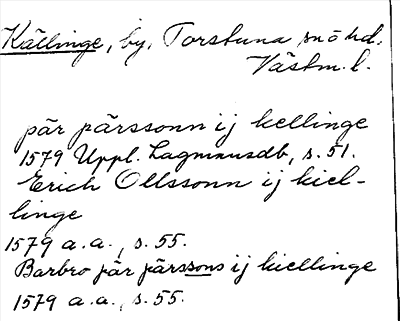 Källinge, by, Torstuna sn o hd.
Västm. l.
pär pärssonn ij kellinge
1579 Uppl. Lagmansdb, s. 51.
Erich Ollssonn ij kiel-
linge
1579 a.a., s. 55.
Barbro pär pärssons ij kiellinge
1579 a.a., s. 55.